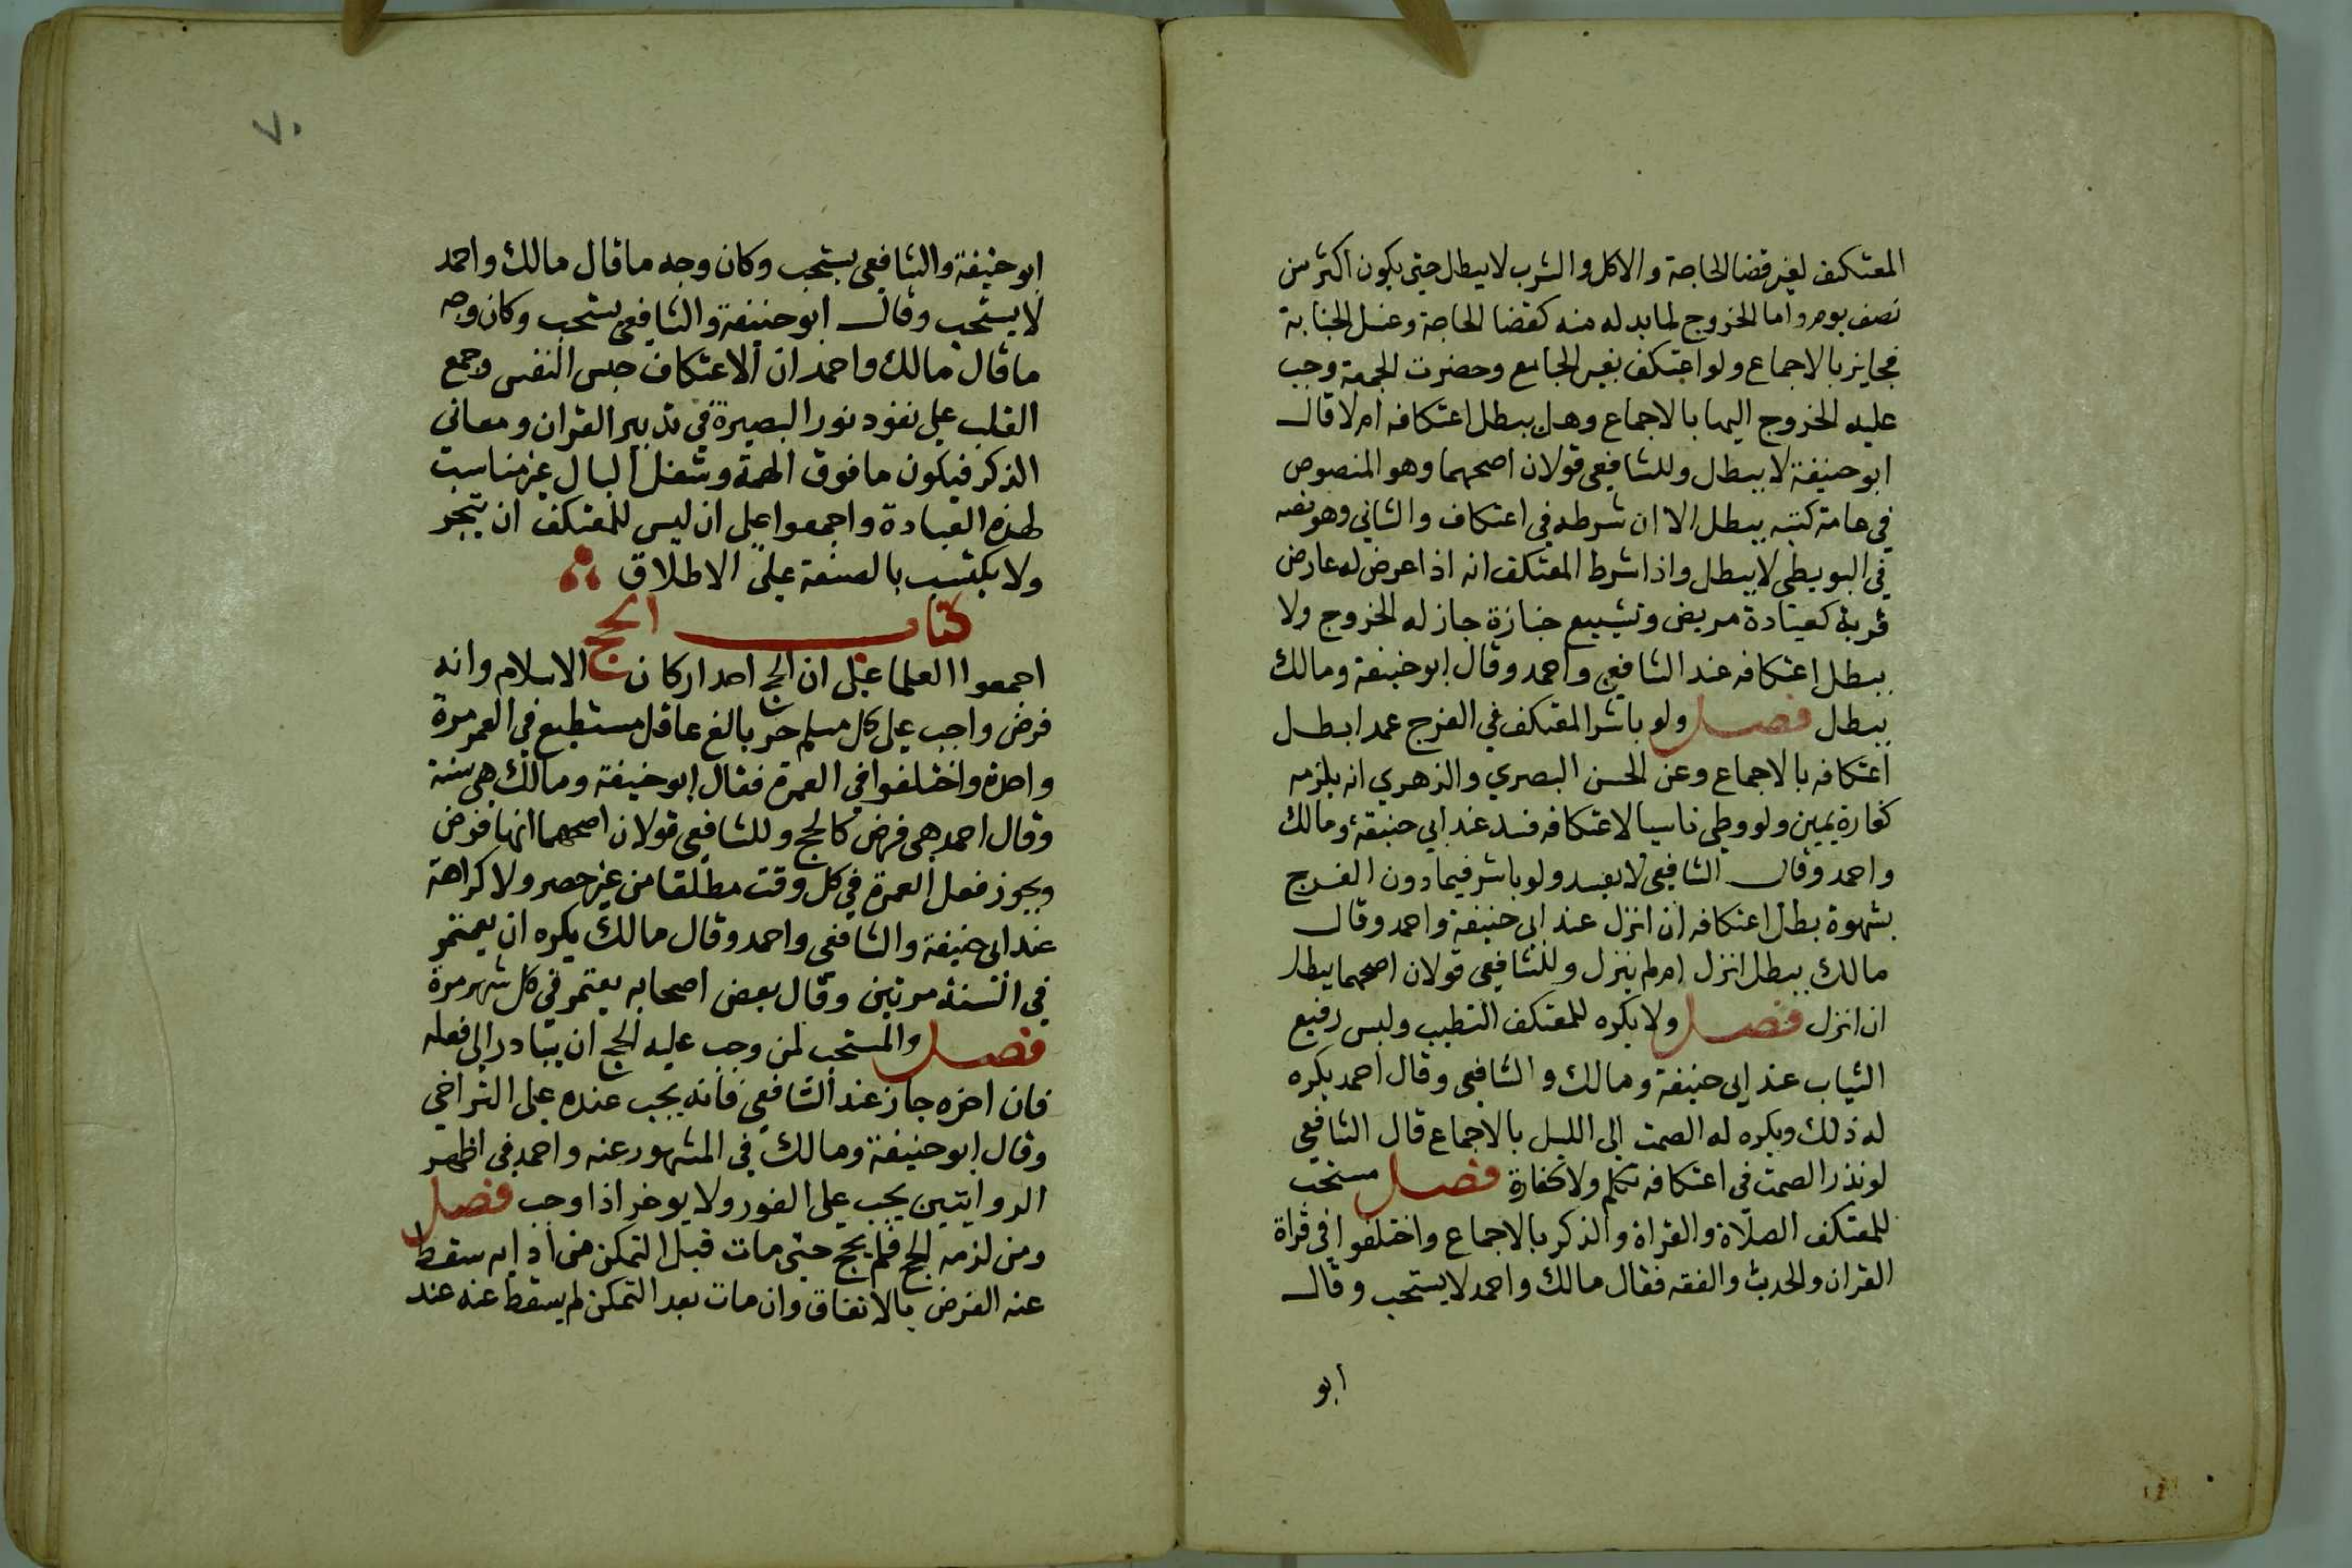 المعتكف لغير قضا الحاجة والاكل والشرب لا يبطل حتى يكون اكثر من
نصف يوم واما الخروج لما بد له منه كقضا الحاجة وغسل الجنابة
فجايز بالاجماع ولو اعتكف بغير الجامع وحضرت الجمعة وجب
عليه الخروج اليها بالاجماع وهل يبطل اعتكافه ام لا قال
ابو حنيفة لا يبطل وللشافعي قولان اصحهما وهو المنصوص
في عامة كتبه يبطل الا ان شرطه في اعتكاف والثاني وهو نصه
في البويطي لا يبطل واذا شرط المعتكف انه اذا عرض له عارض
قربة كعيادة مريض وتشييع جنازة جاز له الخروج ولا
يبطل اعتكافه عند الشافعي واحمد وقال ابو حنيفة ومالك
يبطل فصل ولو باشر المعتكف في الفرج عمدا بطل
اعتكافه بالاجماع وعن الحسن البصري والزهري انه يلزمه
كفارة يمين ولو وطي ناسيا لاعتكافه فسد عند ابي حنيفة ومالك
واحمد وقال الشافعي لا يفسد ولو باشر فيما دون الفرج
بشهوة بطل اعتكافه ان انزل عند ابي حنيفة واحمد وقال
مالك يبطل انزل ام لم ينزل وللشافعي قولان اصحهما يبطل
ان انزل فصل ولا يكره للمعتكف التطيب ولبس رفيع
الثياب عند ابي حنيفة ومالك والشافعي وقال احمد يكره
له ذلك ويكره له الصمت الى الليل بالاجماع قال الشافعي
لو نذر الصمت في اعتكافه تكلم ولا كفارة فصل مستحب
للمعتكف الصلاة والقراة والذكر بالاجماع واختلفوا في قراة
القران والحديث والفقه فقال مالك واحمد لا يستحب وقال
ابو
٧٠
ابو حنيفة والشافعي يستحب وكان وجه ما قال مالك واحمد
لا يستحب وقال ابو حنيفة والشافعي يستحب وكان وجه
ما قال مالك واحمد ان الاعتكاف حبس النفس وجمع
القلب على نفود نور البصيرة في تدبير القران ومعاني
الذكر فيكون ما فوق الهمة وشغل البال غير مناسبت
لهذه العبادة واجمعوا على ان ليس للمعتكف ان يتجر
ولا يكتسب بالصنعة على الاطلاق
كتاب الحج
اجمعوا العلما على ان الحج احد اركان الاسلام وانه
فرض واجب على كل مسلم حر بالغ عاقل مستطيع في العمر مرة
واحدة واختلفوا في العمرة فقال ابو حنيفة ومالك هي سنة
وقال احمد هي فرض كالحج وللشافعي قولان اصحهما انها فرض
ويجوز فعل العمرة في كل وقت مطلقا من غير حصر ولا كراهة
عند ابي حنيفة والشافعي واحمد وقال مالك يكره ان يعتمر
في السنة مرتين وقال بعض اصحابه يعتمر في كل شهر مرة
فصل والمستحب لمن وجب عليه الحج ان يبادر الى فعله
فان اخره جاز عند الشافعي فانه يجب عنده على التراخي
وقال ابو حنيفة ومالك في المشهور عنه واحمد في اظهر
الروايتين يجب على الفور ولا يوخر اذا وجب فصل
ومن لزمه الحج فلم يحج حتى مات قبل التمكن من ادايه سقط
عنه الفرض بالاتفاق وان مات بعد التمكن لم يسقط عنه عند